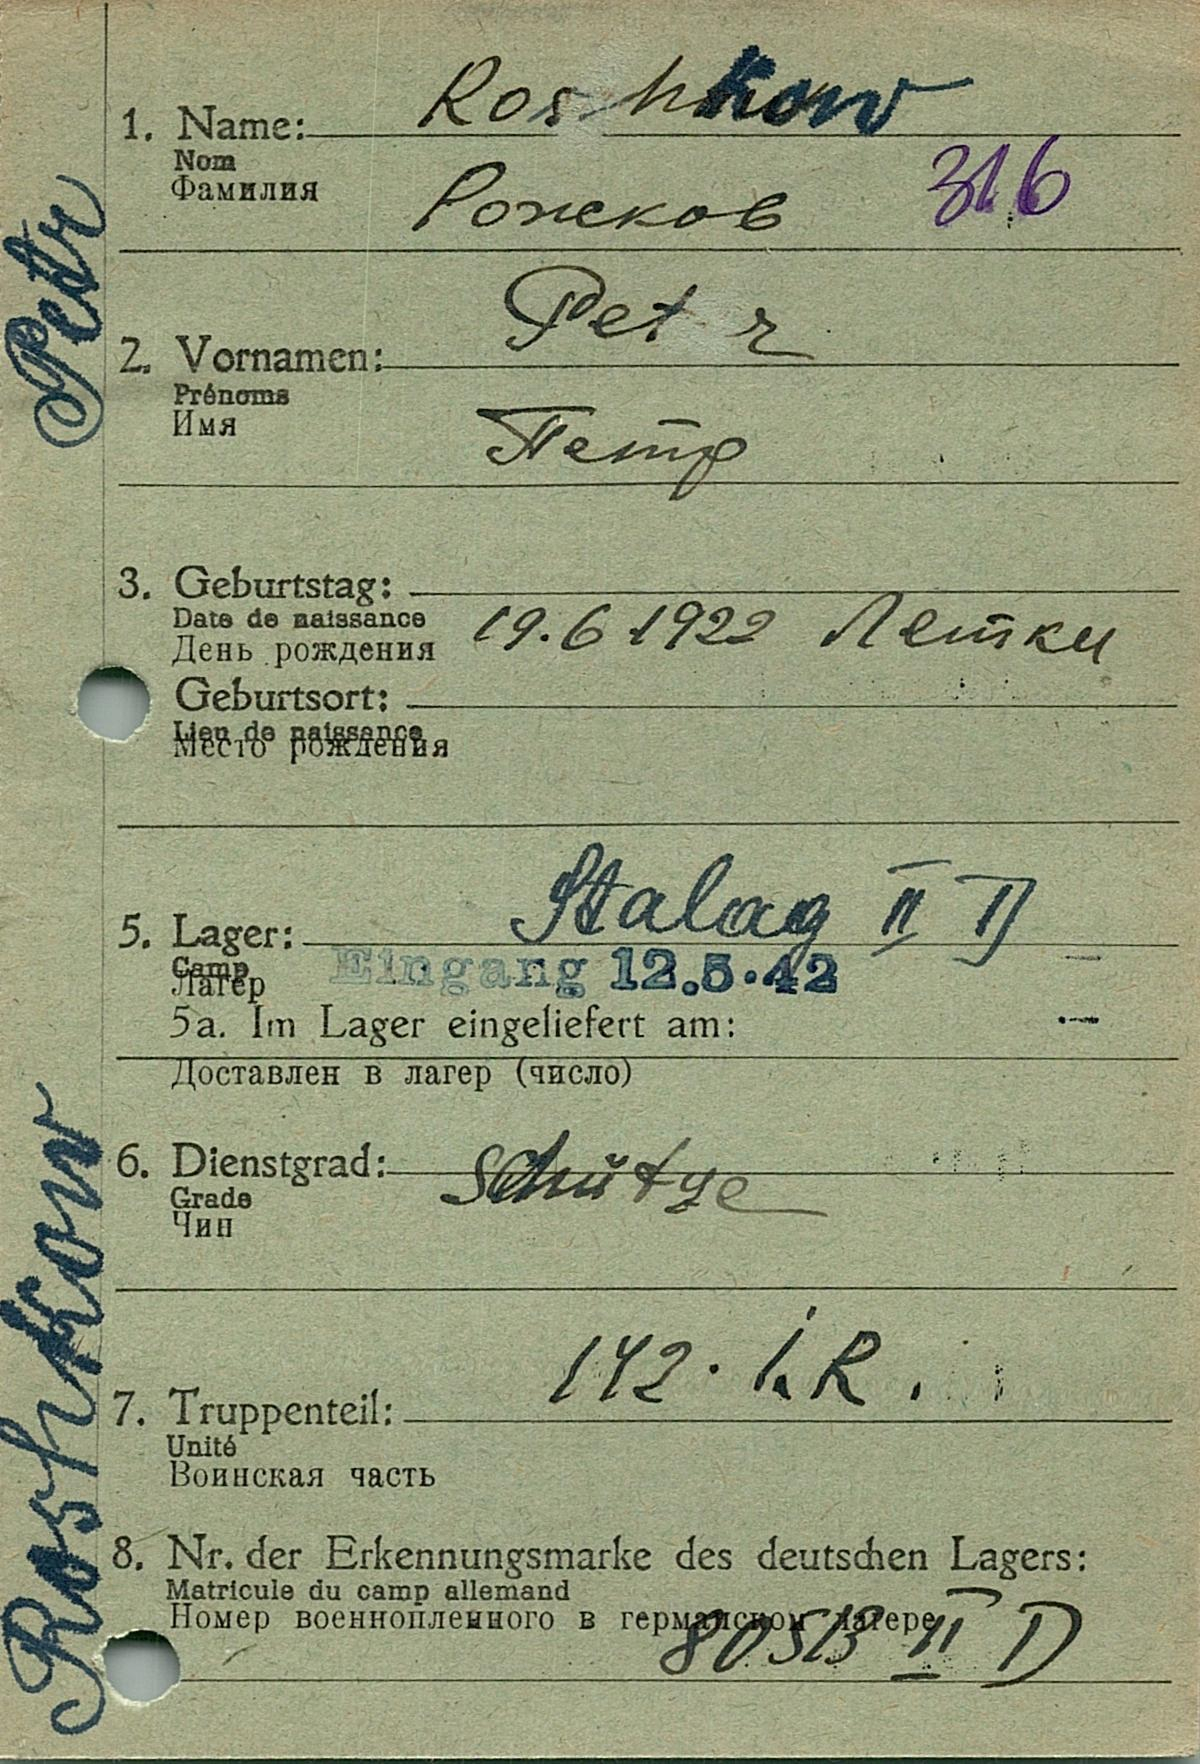 1. Name: Roshkow
Nom
Фамилия Рожков 316
2. Vornamen: Petr
Prénoms
Имя Петр
3. Geburtstag:
Date de naissance
День рождения 19.6 1922 Летки
Geburtsort:
Lieu de naissance
Место рождения
5. Lager: Stalag II D
Camp Eingang 12.5.42
Лагер
5a. Im Lager eingeliefert am:
Доставлен в лагер (число)
6. Dienstgrad: Schütze
Grade
Чин
7. Truppenteil: 142. I.R.
Unité
Воинская часть
8. Nr. der Erkennungsmarke des deutschen Lagers:
Matricule du camp allemand
Номер военнопленного в германском лагере
80513 II D
Roshkow Petr